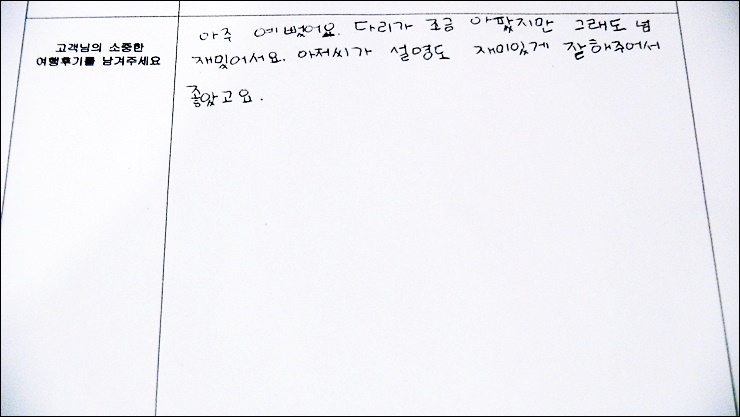 고객님의 소중한
여행후기를 남겨주세요
아주 예뻤어요. 다리가 조금 아팠지만 그래도 넘
재밌어서요. 아저씨가 설명도 재미있게 잘해주어서
좋았고요.